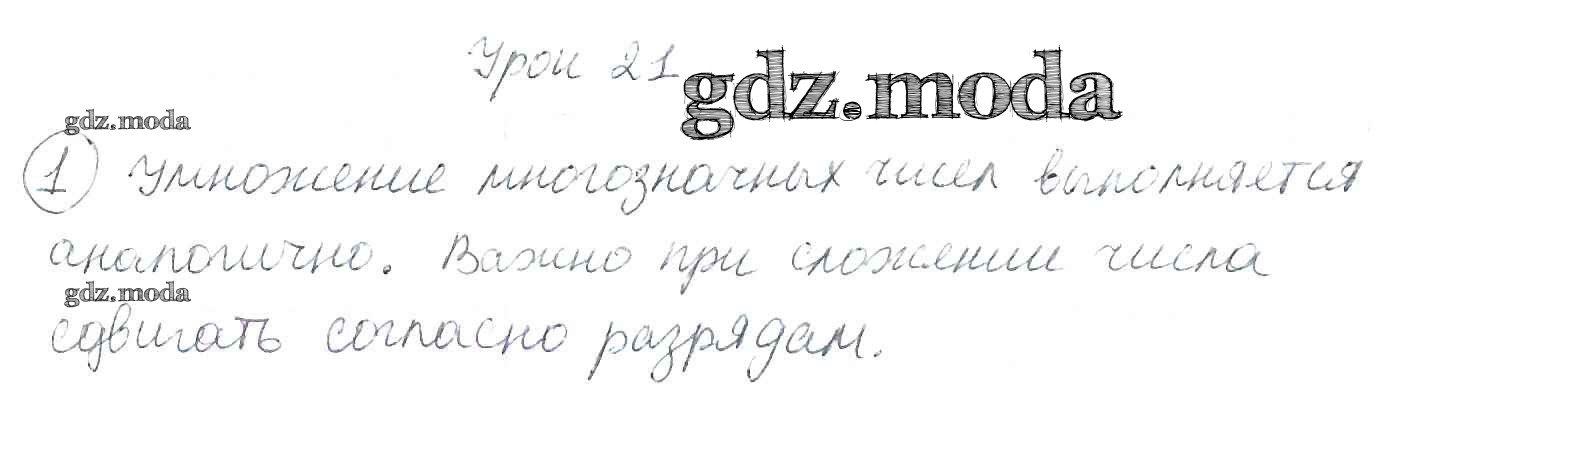 Урок 21 gdz.moda
gdz.moda
1 Умножение многозначных чисел выполняется
аналогично. Важно при сложении числа
gdz.moda
сдвигать согласно разрядам.